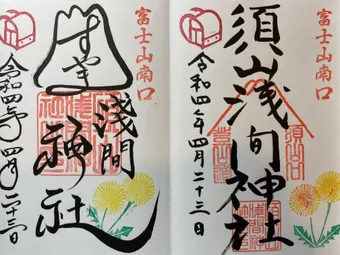 富士山南口
須山浅間神社
令和四年四月二十三日
富士山南口
すやま
浅間
神社
令和四年四月二十三日